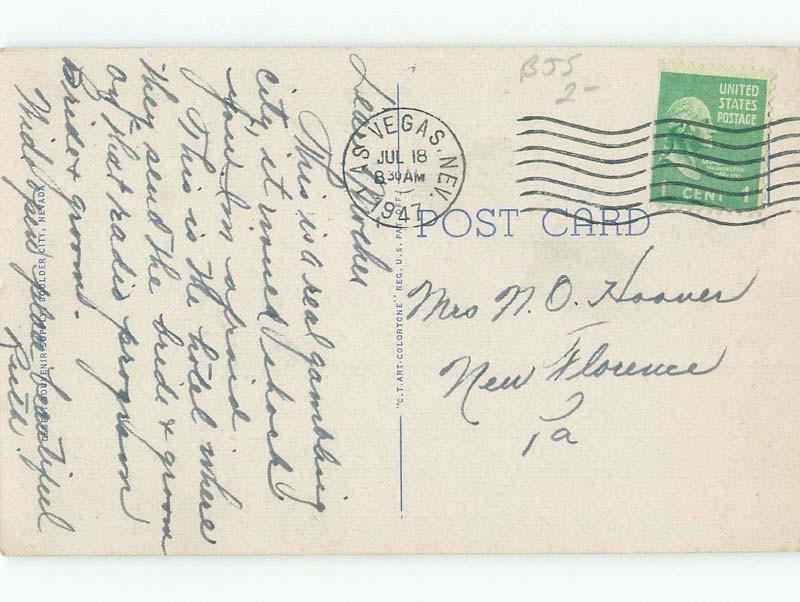 Dear Mother
This is a real gambling
city, it would shock
you I'm afraid
This is the hotel where
they send the bride & groom
of that radio program
Bride & groom.
Wide and beautiful
Ruth.
BOULDER CITY, NEVADA
"C.T. ART-COLORTONE" REG. U.S. PAT. OFF.
LAS VEGAS, NEV.
JUL 18
8 30 AM
1947
B55
2-
UNITED
STATES
POSTAGE
WASHINGTON
1 CENT 1
POST CARD
Mrs N. O. Hoover
New Florence
Pa